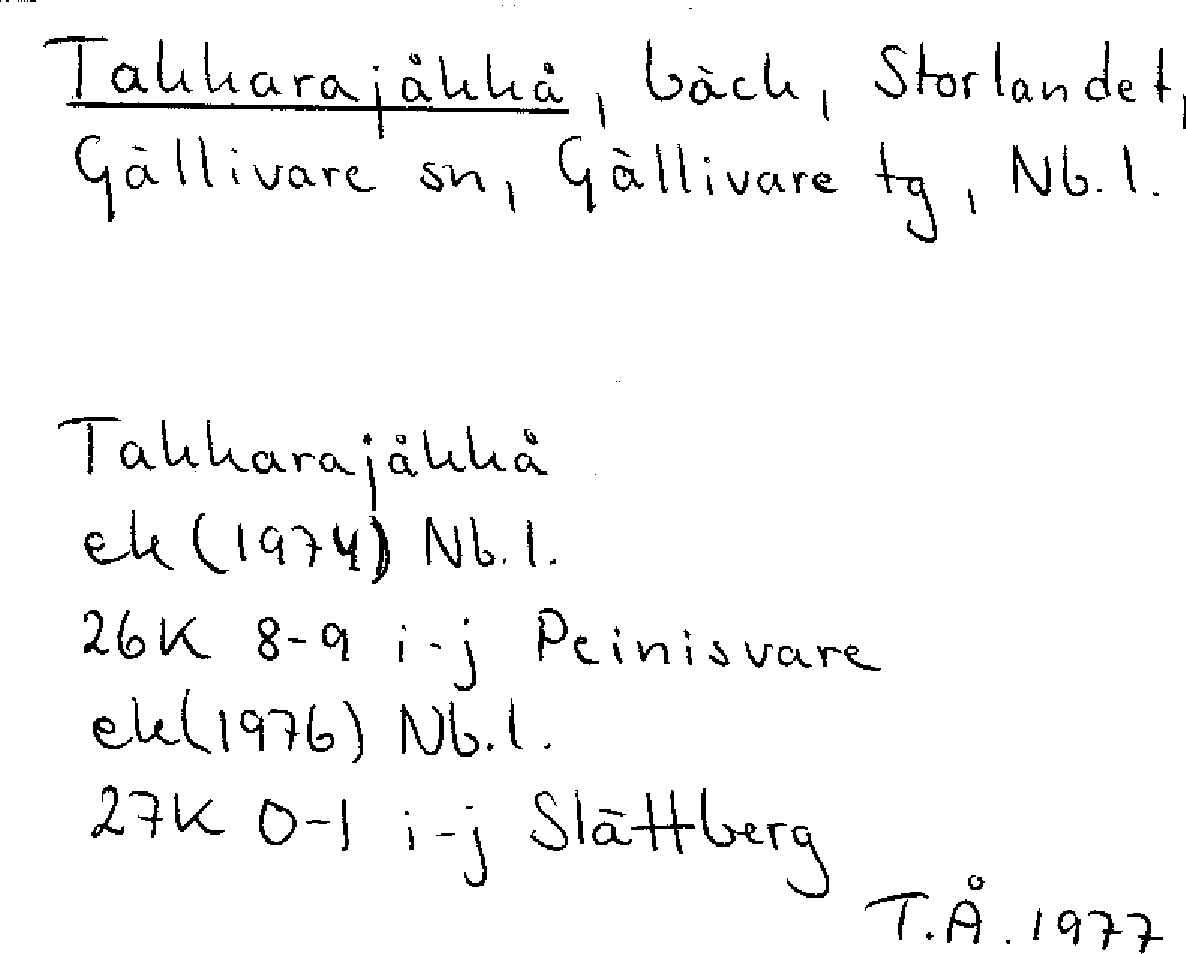 Takkarajåkkå, bäck, Storlandet,
Gällivare sn, Gällivare tg, Nb.l.
Takkarajåkkå
ek (1974) Nb.l.
26K 8-9 i-j Peinisvare
ek(1976) Nb.l.
27K 0-1 i-j Slättberg
T.Å. 1977